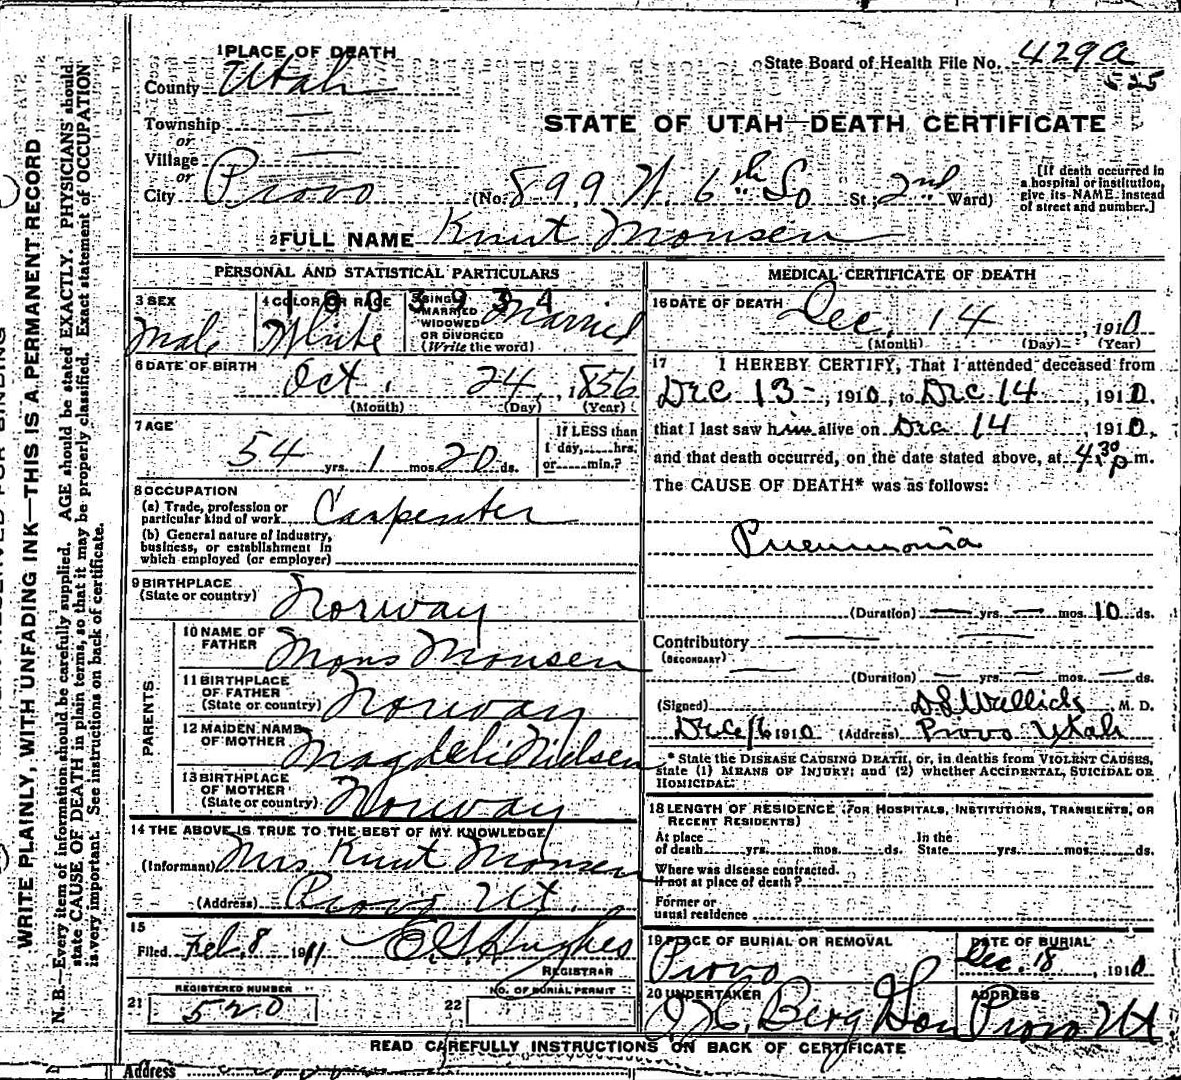 1 PLACE OF DEATH
County Utah
State Board of Health File No. 429a
525
Township
or
Village
or
City Provo (No. 899 W. 6th So St; 2nd Ward)
STATE OF UTAH—DEATH CERTIFICATE
[If death occurred in a hospital or institution, give its NAME instead of street and number.]
2 FULL NAME Knut Monsen
PERSONAL AND STATISTICAL PARTICULARS
1003934
3 SEX Male
4 COLOR OR RACE White
5 SINGLE MARRIED WIDOWED OR DIVORCED (Write the word) Married
6 DATE OF BIRTH Oct. 24, 1856
(Month) (Day) (Year)
7 AGE 54 yrs. 1 mos. 20 ds.
If LESS than 1 day, hrs. or min.?
8 OCCUPATION
(a) Trade, profession or particular kind of work Carpenter
(b) General nature of industry, business, or establishment in which employed (or employer)
9 BIRTHPLACE (State or country) Norway
PARENTS
10 NAME OF FATHER Mons Monsen
11 BIRTHPLACE OF FATHER (State or country) Norway
12 MAIDEN NAME OF MOTHER Magdeli Nielsen
13 BIRTHPLACE OF MOTHER (State or country) Norway
14 THE ABOVE IS TRUE TO THE BEST OF MY KNOWLEDGE
(Informant) Mrs Knut Monsen
(Address) Provo Ut.
15
Filed Feb. 8 1911 E G Hughes
REGISTRAR
21 REGISTERED NUMBER 520
22 NO. OF BURIAL PERMIT
MEDICAL CERTIFICATE OF DEATH
16 DATE OF DEATH Dec. 14, 1910
(Month) (Day) (Year)
17 I HEREBY CERTIFY, That I attended deceased from
Dec 13 -, 1910, to Dec 14, 1910.
that I last saw him alive on Dec 14, 1910,
and that death occurred, on the date stated above, at 4:30 p m.
The CAUSE OF DEATH* was as follows:
Pneumonia
(Duration) — yrs. — mos. 10 ds.
Contributory
(SECONDARY)
(Duration) — yrs. — mos. — ds.
(Signed) M. D.
Dec 16 1910 (Address) Provo Utah
* State the DISEASE CAUSING DEATH, or, in deaths from VIOLENT CAUSES, state (1) MEANS OF INJURY; and (2) whether ACCIDENTAL, SUICIDAL OR HOMICIDAL.
18 LENGTH OF RESIDENCE (FOR HOSPITALS, INSTITUTIONS, TRANSIENTS, OR RECENT RESIDENTS)
At place of death yrs. mos. ds. In the State yrs. mos. ds.
Where was disease contracted. if not at place of death?
Former or usual residence
19 PLACE OF BURIAL OR REMOVAL Provo
DATE OF BURIAL Dec. 18, 1910
20 UNDERTAKER Berg & Son
ADDRESS Provo Ut
READ CAREFULLY INSTRUCTIONS ON BACK OF CERTIFICATE
Address
WRITE PLAINLY, WITH UNFADING INK—THIS IS A PERMANENT RECORD
N. B.—Every item of information should be carefully supplied. AGE should be stated EXACTLY. PHYSICIANS should
state CAUSE OF DEATH in plain terms, so that it may be properly classified. Exact statement of OCCUPATION
is very important. See instructions on back of certificate.